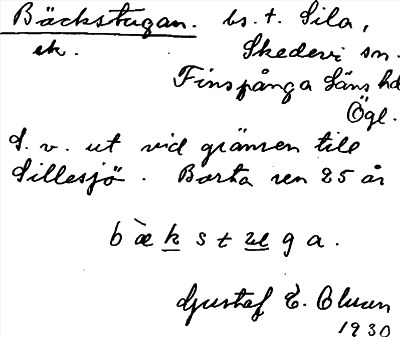 Bäckstugan. bs. t. Sila,
ek. Skedevi sn.
Finspånga läns hd
Ögl.
S. v. ut vid gränsen till
Sillesjö. Borta sen 25 år
b æ̀ k s t u g a.
Gustaf E.
1930